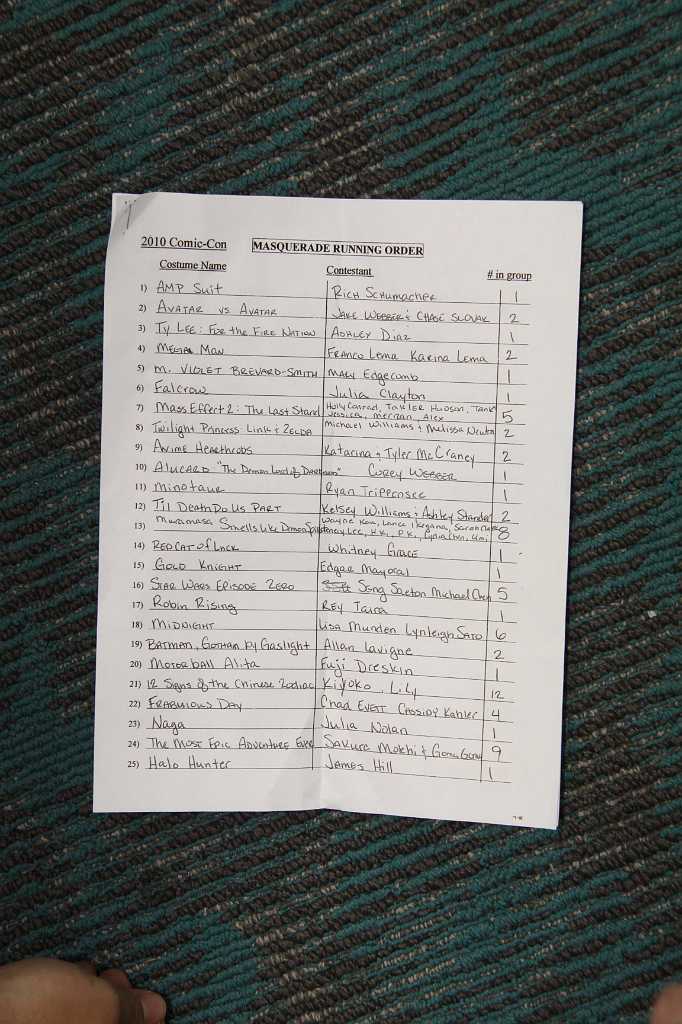 2010 Comic-Con MASQUERADE RUNNING ORDER
Costume Name Contestant # in group
1) AMP Suit Rich Schumacher 1
2) AVATAR VS AVATAR JAKE WEBBER & CHASE SLOVAK 2
3) Ty Lee: For the Fire Nation Ashley Diaz 1
4) MEGA MAN Franco Lema Karina Lema 2
5) M. VIOLET BREVARD-SMITH MARY Edgecomb 1
6) Falcrow Julia Clayton 1
7) Mass Effect 2: The Last Stand Holly Conrad, Hudson, Tank
Jessica, Meagan, Alex 5
8) Twilight Princess: Link & Zelda Michael Williams & Melissa 2
9) Anime Hearthrobs Katarina & Tyler McCraney 2
10) Alucard "The Demon Lord of Darkness" COREY WEBBER 1
11) minotaur Ryan 1
12) Til Death Do Us PART Kelsey Williams & Ashley 2
13) Muramasa Smells Like Demon Wayne Lance Sarah
Lee, H.K., P.K., Lydia Chen, 8
14) RED CAT of Luck Whitney Grace 1
15) GOLD KNIGHT Edgar Mayoral 1
16) STAR WARS EPISODE ZERO Song Saeton Michael Chen 5
17) Robin Rising REY 1
18) MIDNIGHT Lisa Munden Lynleigh SATO 6
19) BATMAN, GOTHAM by Gaslight Allan Lavigne 2
20) Motorball Alita Fuji Dreskin 1
21) 12 Signs of the Chinese Zodiac Kiyoko, Lily 12
22) FRABJULOUS DAY Chad EVETT CASSIDY Kahler 4
23) Naga Julia Nolan 1
24) The MOST EPIC ADVENTURE EVER Sakura Mochi & 9
25) Halo Hunter James Hill 1